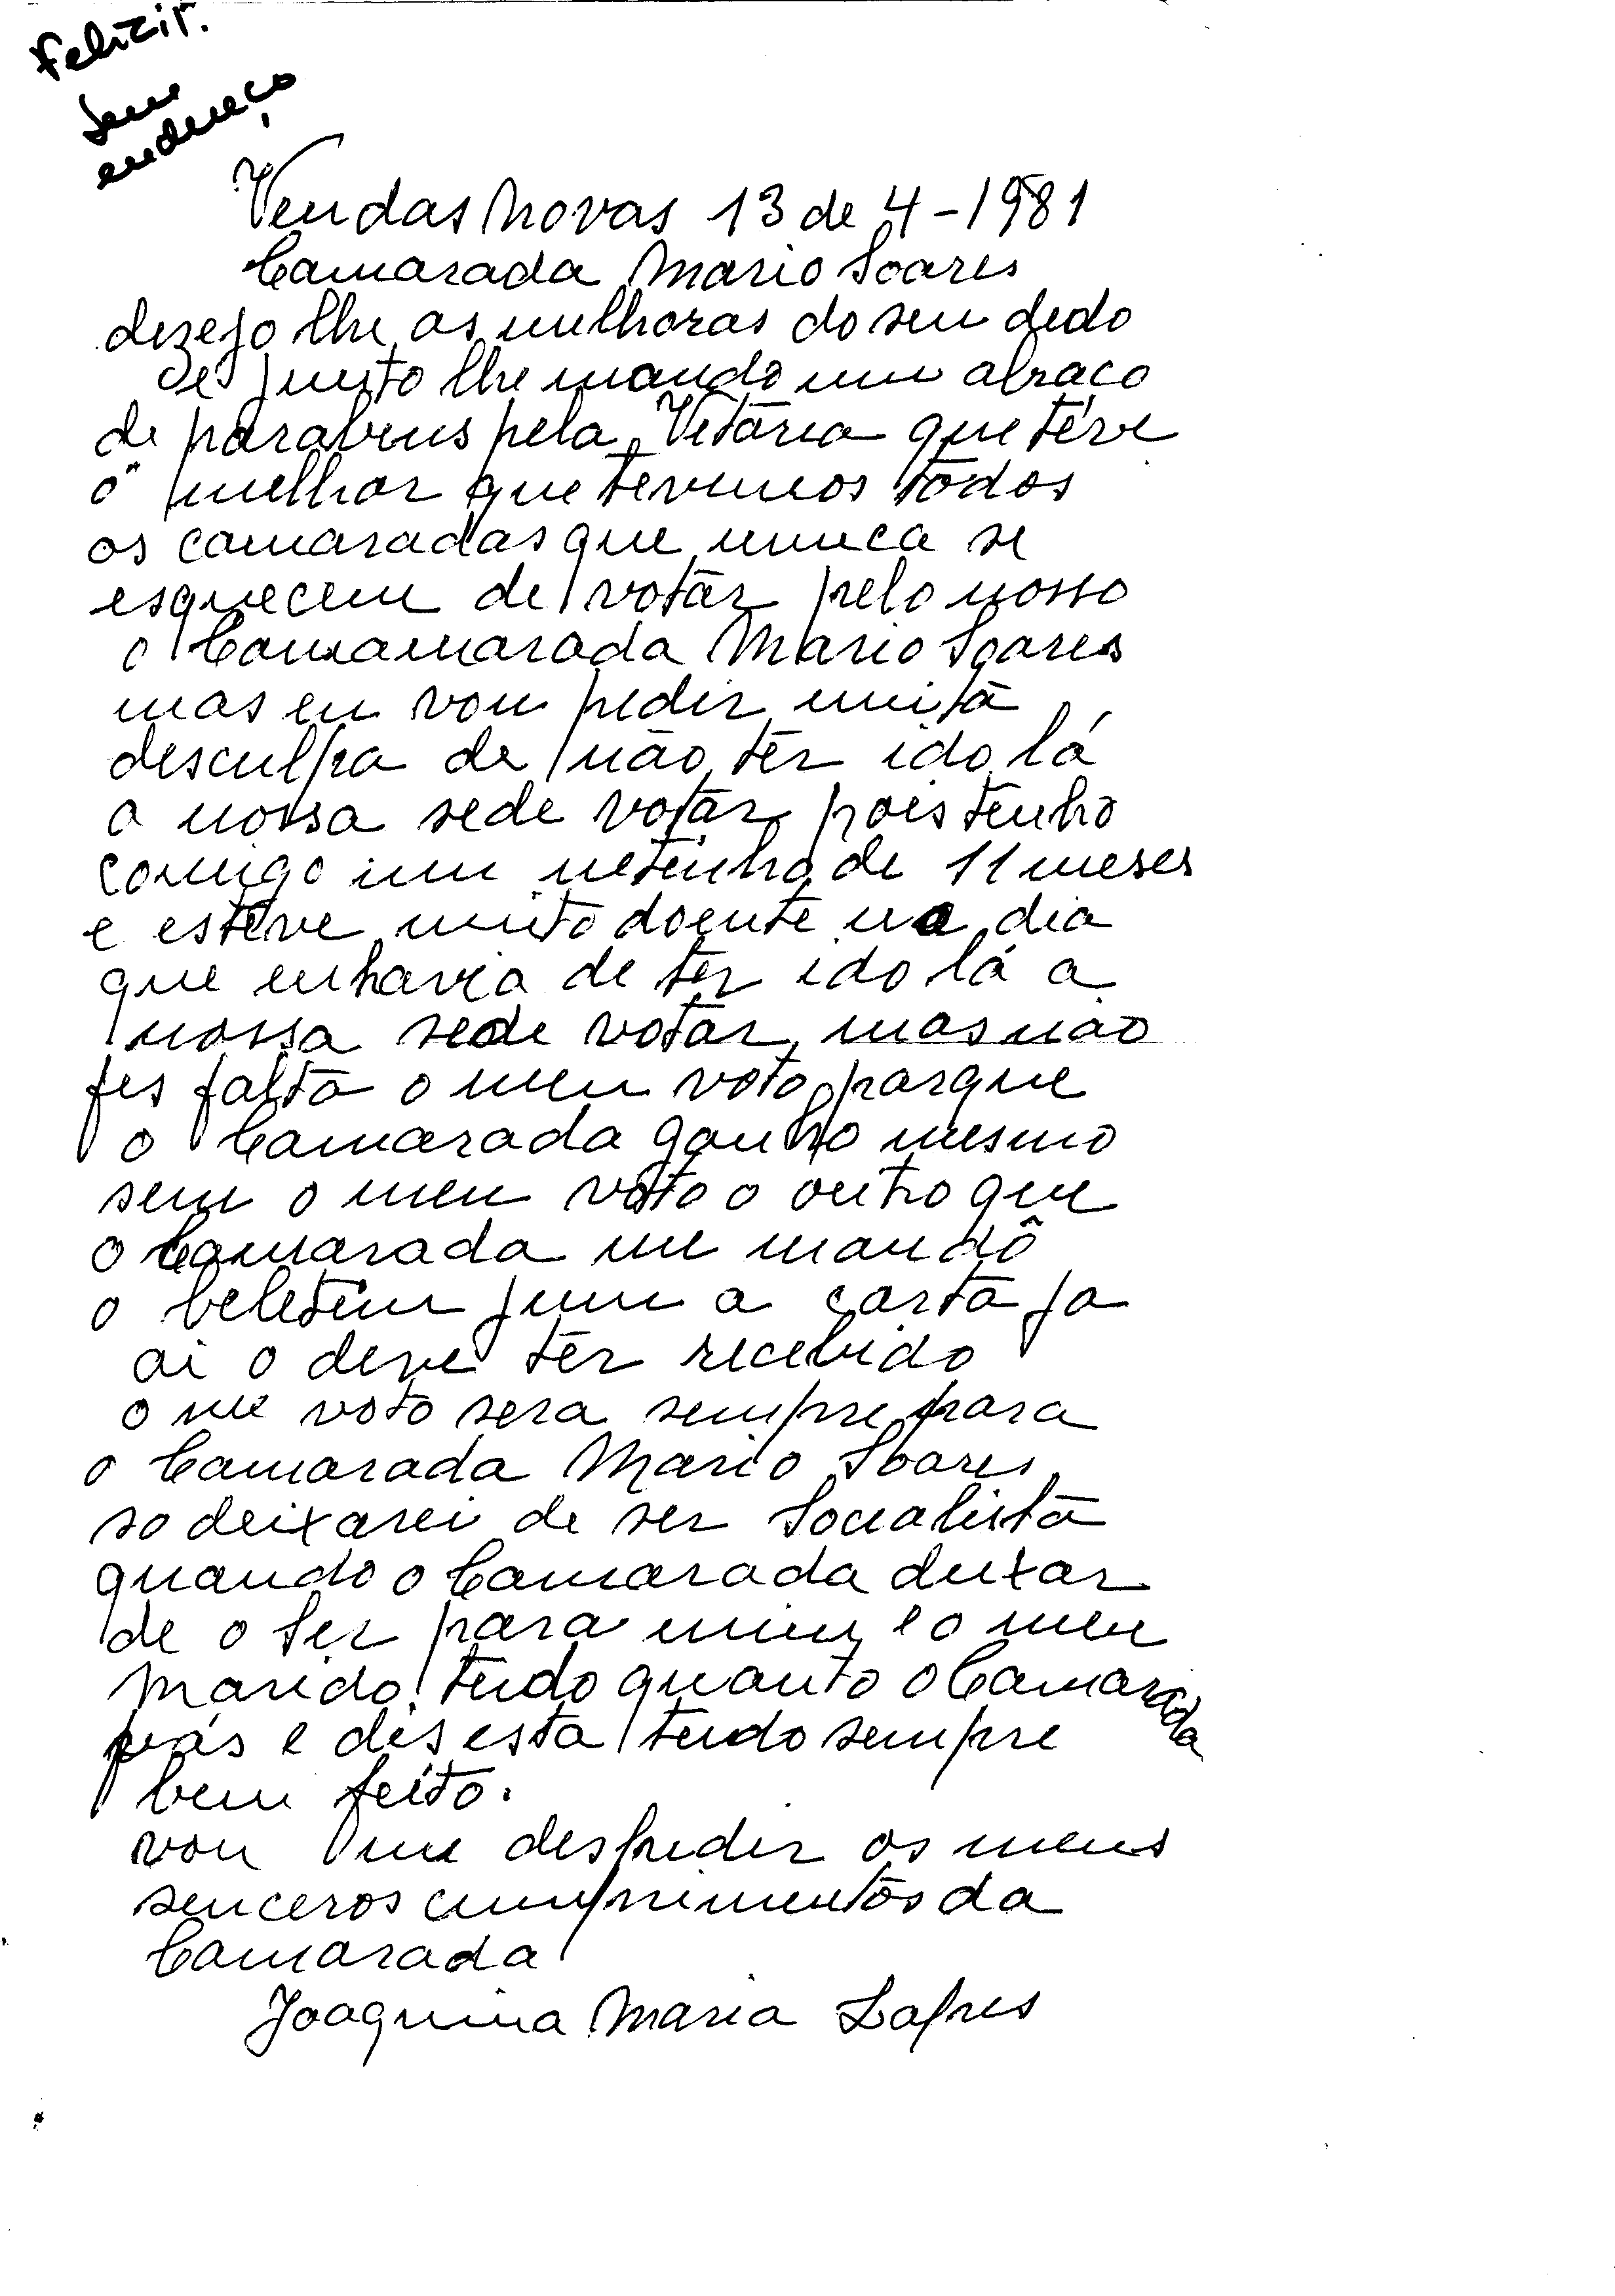 Felicit.
sem
endereço
Vendas Novas 13 de 4-1981
Camarada Mario Soares
dezejo lhe as melhoras do seu dedo
de junto lhe mando um abraco
de parabens pela Vetória que téve
o melhor que tevemos todos
os camaradas que nunca se
esquecem de votar pelo nosso
o Camamarada Mario Soares
mas eu vou pedir muita
desculpa de não ter ido lá
a nossa sede votar pois tenho
comigo um netinho de 11 meses
e esteve muito doente no dia
que eu havia de ter ido lá a
nossa sede votar, mas não
fes falta o meu voto porque
o Camarada ganho mesmo
sem o meu voto o outro que
o Camarada me mandô
o beletim jum a carta ja
ai o deve ter recebido
o me voto sera sempre para
o Camarada Mario Soares
so deixarei de ser Socialista
quando o Camarada deixar
de o ser para mim e o meu
marido tudo quanto o Camarada
fás e dis esta tudo sempre
bem feito.
vou me despedir os meus
senceros cumprimentos da
Camarada
Joaquina Maria Lopes